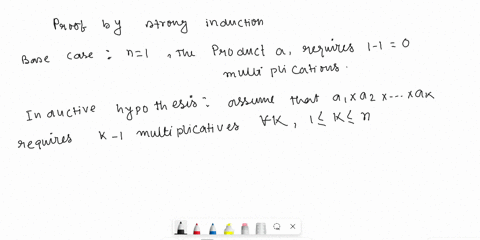 Proof by strong induction
Base case : n=1 , The Product a, requires 1-1 = 0
multiplications.
Inductive hypothesis : assume that a₁ x a₂ x ... x aₖ
requires K-1 multiplicatives ∀K, 1 ≤ K ≤ n